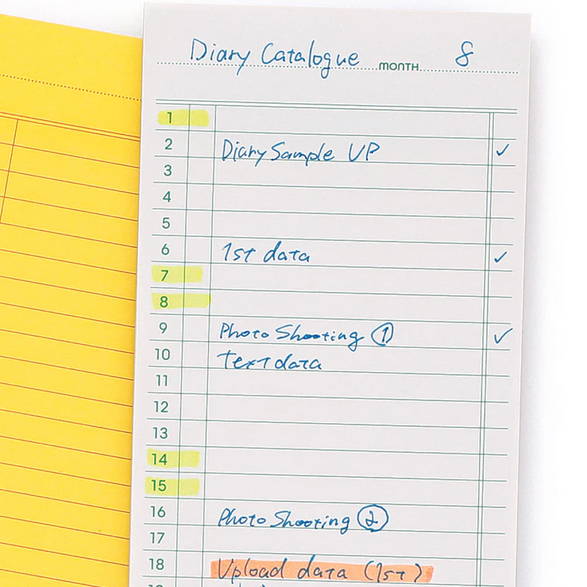 Diary Catalogue MONTH 8
1
2 Diary Sample UP ✓
3
4
5
6 1st data ✓
7
8
9 Photo Shooting ① ✓
10 Text data
11
12
13
14
15
16 Photo Shooting ②
17
18 Upload data (1st)